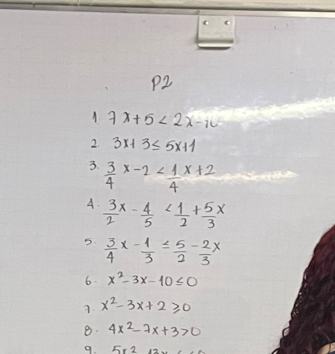 P2
1 7x+5<2x-10
2 3x+3≤5x+1
3. 3/4 x-2 < 1/4 x+2
4. 3/2 x - 4/5 < 1/2 + 5/3 x
5. 3/4 x - 1/3 ≤ 5/2 - 2/3 x
6. x²-3x-10≤0
7. x²-3x+2≥0
8. 4x²-7x+3>0
9. 5x²